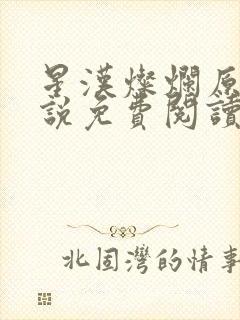 星漢燦爛原
說免費閱讀
北固灣的情事